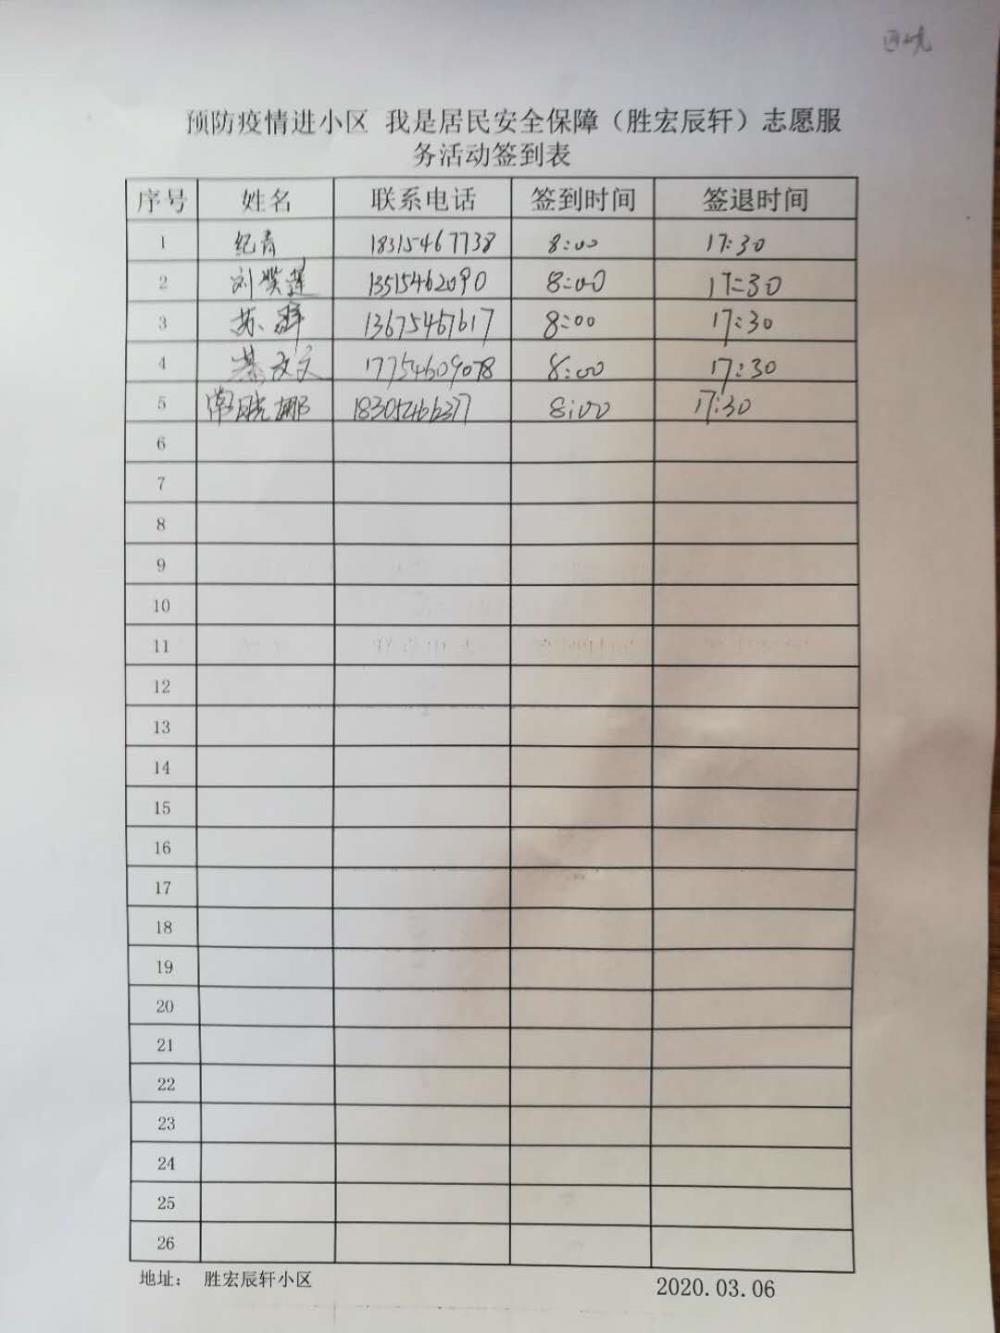 预防疫情进小区 我是居民安全保障（胜宏辰轩）志愿服
务活动签到表
序号 姓名 联系电话 签到时间 签退时间
1 纪青 18315467738 8:00 17:30
2 刘 莲 13515462090 8:00 17:30
3 苏 13675467617 8:00 17:30
4 文文 17754609078 8:00 17:30
5 常晓娜 8:00 17:30
6
7
8
9
10
11
12
13
14
15
16
17
18
19
20
21
22
23
24
25
26
地址： 胜宏辰轩小区 2020.03.06